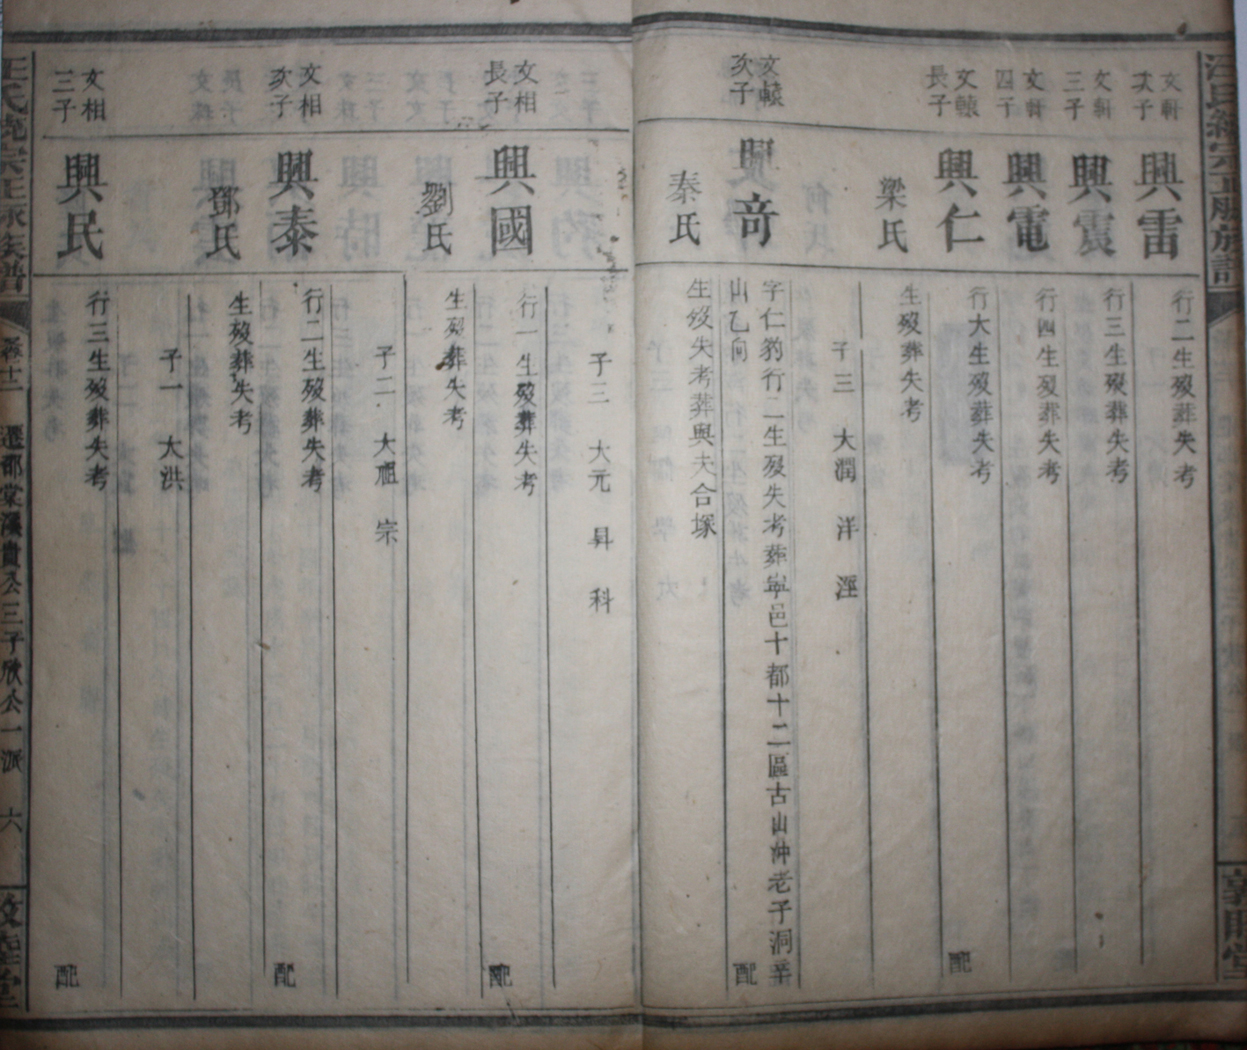 文軒次子
興雷
行二生歿葬失考
文軒三子
興震
行三生歿葬失考
文軒四子
興電
行四生歿葬失考
文轅長子
興仁
行大生歿葬失考
配
梁氏
生歿葬失考
子三 大潤 洋 溼
文轅次子
興奇
字仁豹行二生歿失考葬寧邑十都十二區古山冲老子洞辛
山乙向
配
秦氏
生歿失考葬與夫合塚
子三 大元 昇 科
文相長子
興國
行一生歿葬失考
配
劉氏
生歿葬失考
子二 大祖 宗
文相次子
興泰
行二生歿葬失考
配
鄧氏
生歿葬失考
子一 大洪
文相三子
興民
行三生歿葬失考
配
卷十二 遷都棠溪貴公三子欣公一派 六